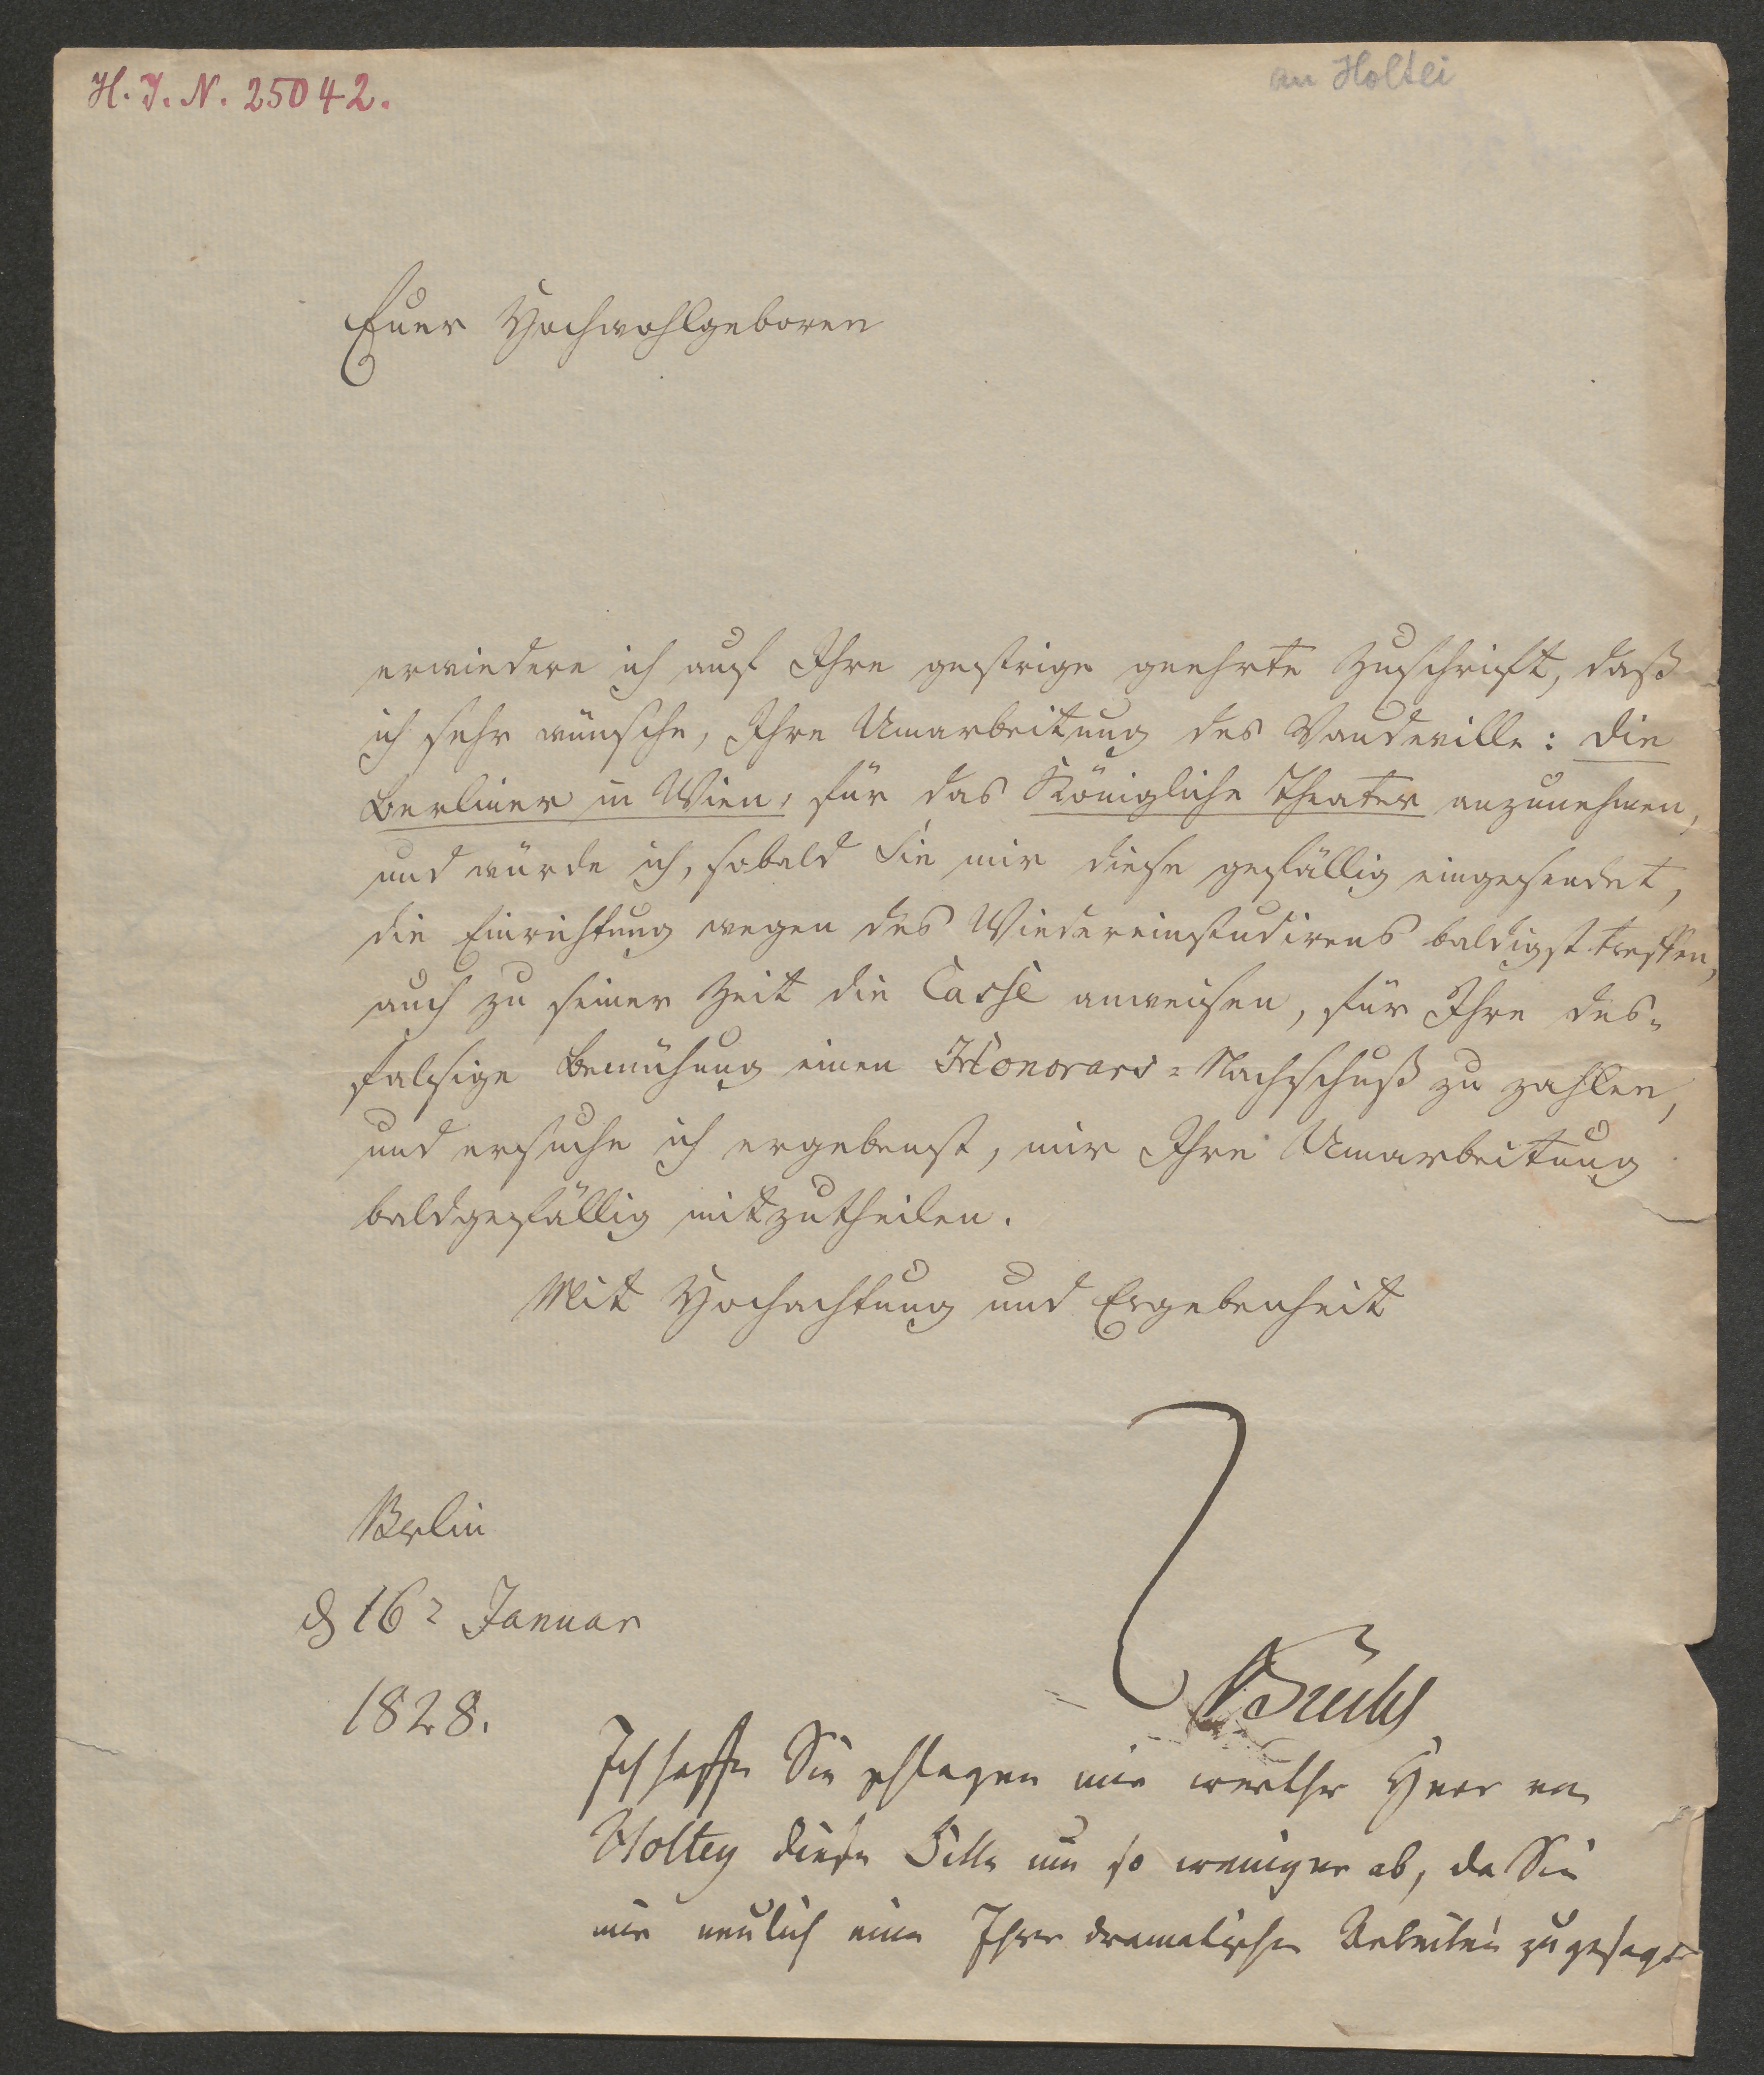 H. I. N. 25042.
an Holtei
Euer Hochwohlgeboren
erwiedere ich auf Ihre gestrige geehrte Zuschrift, daß
ich sehr wünsche, Ihre Umarbeitung des Vaudeville: die
Berliner in Wien, für das Königliche Theater anzunehmen,
und würde ich, sobald Sie mir diese gefällig eingesendet,
die Einrichtung wegen des Wiedereinstudirens baldigst treffen,
auch zu seiner Zeit die Casse anweisen, für Ihre des-
falsige Bemühung einen Honorars-Nachschuß zu zahlen,
und ersuche ich ergebenst, mir Ihre Umarbeitung
baldgefällig mitzutheilen.
Mit Hochachtung und Ergebenheit
Berlin
d 16 Januar
1828.
Brühl
Ich hoffe Sie schlagen mir werther Herr von
Holtey diese Bitte um so weniger ab, da Sie
mir neulich eine Ihrer dramatischen Arbeiten zugesagt